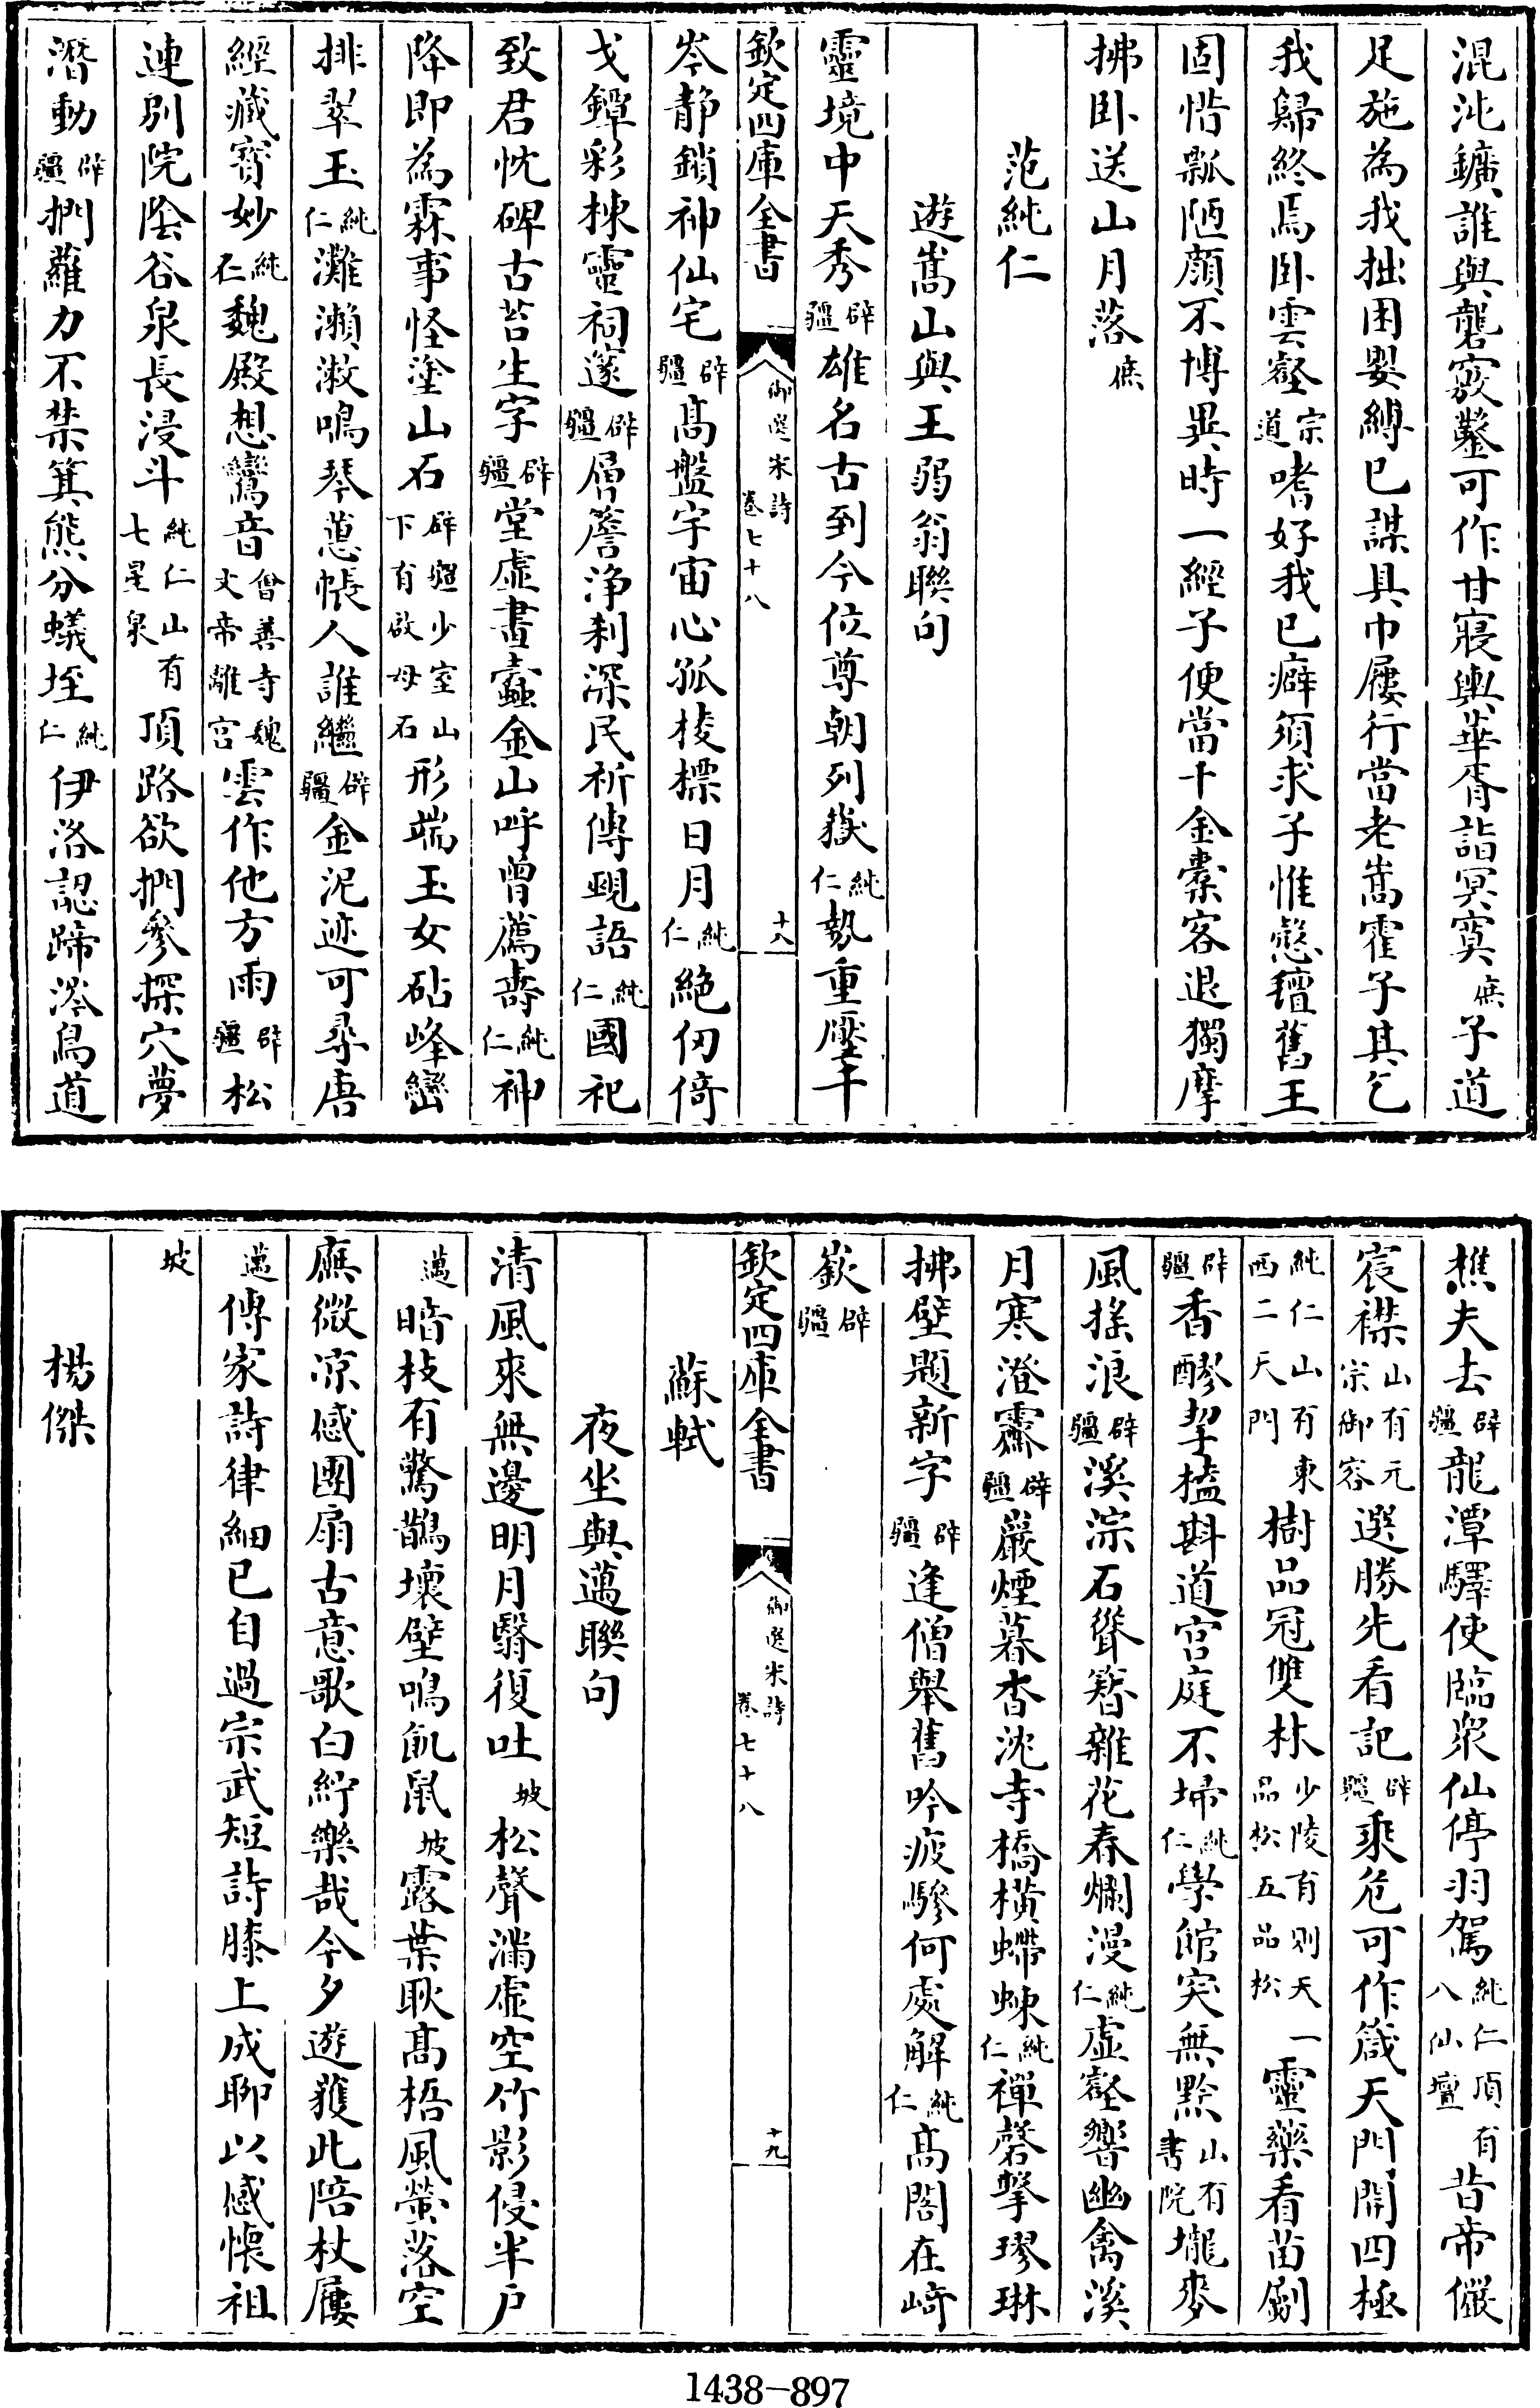 混沌鑛誰與礱窾鑿可作甘寢輿華胥詣冥寞庶子道
足施為我拙困嬰縛已謀具巾屨行當老嵩霍子其乞
我歸終焉卧雲壑宗道嗜好我已癖須求子惟愨氊舊王
固惜瓢陋顔不博異時一經子便當千金橐客退獨摩
拂卧送山月落庶
范純仁
遊嵩山與王弱翁聯句
靈境中天秀辟疆雄名古到今位尊朝列嶽純仁埶重壓千
欽定四庫全書 御選宋詩卷七十八 十八
岑静鎖神仙宅辟疆髙盤宇宙心孤稜標日月純仁絶仞倚
戈鐔彩棟靈祠邃辟疆層簷浄刹深民祈傳覡語純仁國祀
致君忱碑古苔生字辟疆堂虚畫蠧金山呼曾薦壽純仁神
降即為霖事怪塗山石辟疆少室山下有啟母石形端玉女砧峰巒
排翠玉純仁灘瀨漱鳴琴蕙帳人誰繼辟疆金泥迹可尋唐
經藏寳妙純仁魏殿想鸞音僧善寺魏文帝離宫雲作他方雨辟疆松
連别院陰谷泉長浸斗純仁山有七星泉頂路欲捫參探穴夢
潛動辟疆捫蘿力不禁箕熊分蟻垤純仁伊洛認蹄涔鳥道
樵夫去辟疆龍潭驛使臨衆仙停羽駕純仁頂有八仙壇昔帝儼
宸襟山有元宗御容選勝先看記辟疆乘危可作箴天門開四極
純仁山有東西二天門樹品冠雙林少陵有則天一品松五品松靈藥看苗劚
辟疆香醪挈榼斟道宫庭不埽純仁學館突無黔山有書院壠麥
風揺浪辟疆溪淙石聳簪雜花春爛漫純仁虚壑響幽禽溪
月寒澄霽辟疆巖煙暮杳沈寺橋横螮蝀純仁禪磬擊璆琳
拂壁題新字辟疆逢僧舉舊吟疲驂何處解純仁髙閣在﨑
嶔辟疆
欽定四庫全書 御選宋詩卷七十八 十九
蘇軾
夜坐與邁聯句
清風來無邊明月翳復吐坡松聲滿虚空竹影侵半户
邁暗枝有驚鵲壞壁鳴飢鼠坡露葉耿髙梧風螢落空
廡微凉感團扇古意歌白紵樂哉今夕遊獲此陪杖屨
邁傳家詩律細已自過宗武短詩膝上成聊以感懷祖
坡
楊傑
1438-897